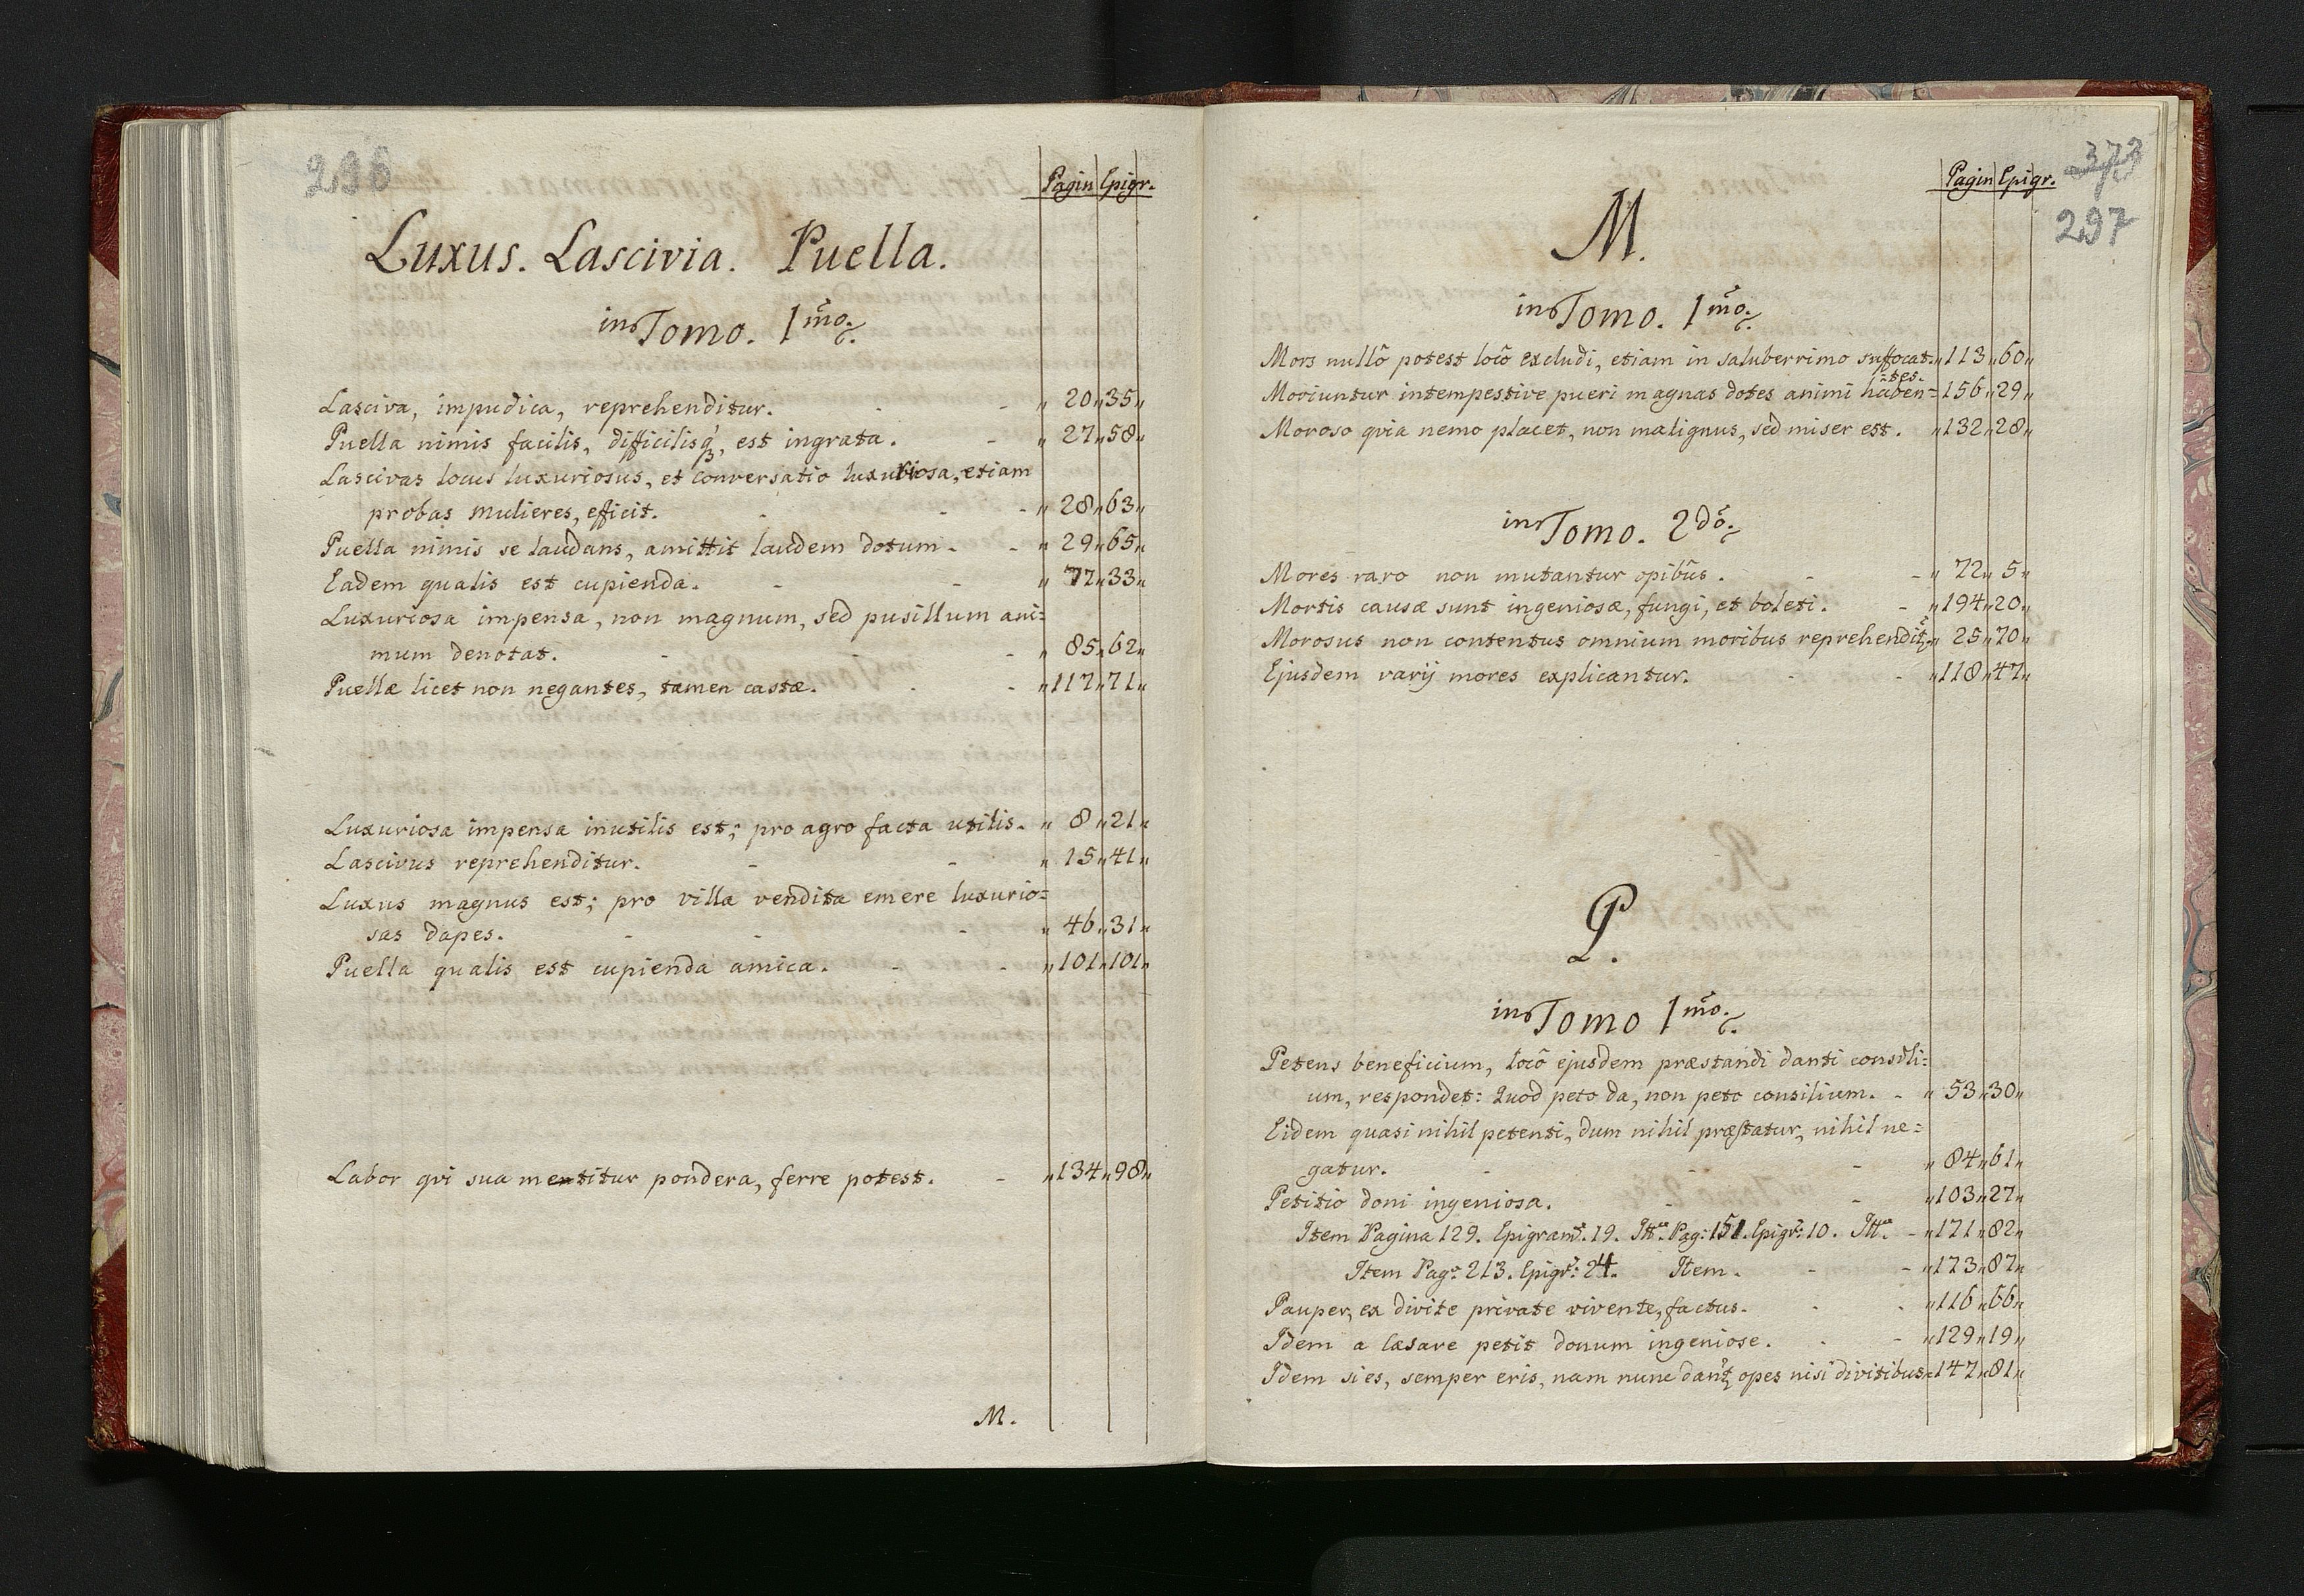 296
Pagin Epigr.
Luxus. Lascivia. Puella.
in Tomo. 1mo.
Lasciva, impudica, reprehenditur. - - „ 20 „ 35 „
Puella nimis facilis, difficilisq3, est ingrata. - „ 27 „ 58 „
Lascivas locus luxuriosus, et conversatio luxuriosa, etiam
probas mulieres, efficit. - - - „ 28 „ 63 „
Puella nimis se laudans, amittit laudem dotum. - - „ 29 „ 65 „
Eadem qualis est cupienda. - - „ 77 „ 33 „
Luxuriosa impensa, non magnum, sed pusillum ani=
mum denotat. - - - „ 85 „ 62 „
Puellæ licet non negantes, tamen castæ. - - „ 117 „ 71 „
Luxuriosa impensa inutilis est; pro agro facta utilis. - „ 8 „ 21 „
Lascivus reprehenditur. - - „ 15 „ 41 „
Luxus magnus est; pro villa vendita emere luxurio=
sas dapes. - - - „ 46 „ 31 „
Puella qualis est cupienda amica. - - „ 101 „ 101 „
Labor qvi sua mentitur pondera, ferre potest. - „ 134 „ 98 „
M.
373
Pagin Epigr.
297
M.
in Tomo. 1mo.
Mors nullô potest locô excludi, etiam in saluberrimo suffocat. „ 113 „ 60 „
=tes.
Moriuntur intempestive pueri magnas dotes animi haben= 156 „ 29 „
Moroso qvia nemo placet, non malignus, sed miser est. „ 132 „ 28 „
in Tomo. 2do.
Mores raro non mutantur opibûs. - - „ 72 „ 5 „
Mortis causæ sunt ingeniosæ, fungi, et boleti. - „ 194 „ 20 „
Morosus non contentus omnium moribus reprehendit „ 25 „ 70 „
Ejusdem varij mores explicantur. - - „ 118 „ 47 „
P.
in Tomo 1mo.
Petens beneficium, locô ejusdem præstandi danti consili=
um, respondet: Quod peto da, non peto consilium. - „ 53 „ 30 „
Eidem quasi nihil petenti, dum nihil præstatur, nihil ne=
gatur. - - - „ 84 „ 61 „
Petitio doni ingeniosa. - - „ 103 „ 27 „
Item Pagina 129. Epigram. 19. Itt. Pag: 151. Epigr: 10. Itt. - „ 171 „ 82 „
Item Pag. 213. Epigr: 24. Item. - - „ 173 „ 87 „
Pauper, ex divite private vivente, factus. - - „ 116 „ 66 „
Idem a Cæsare petit donum ingeniose. - - „ 129 „ 19 „
Idem si es, semper eris, nam nunc dant opes nisi divitibus. „ 147 „ 81 „